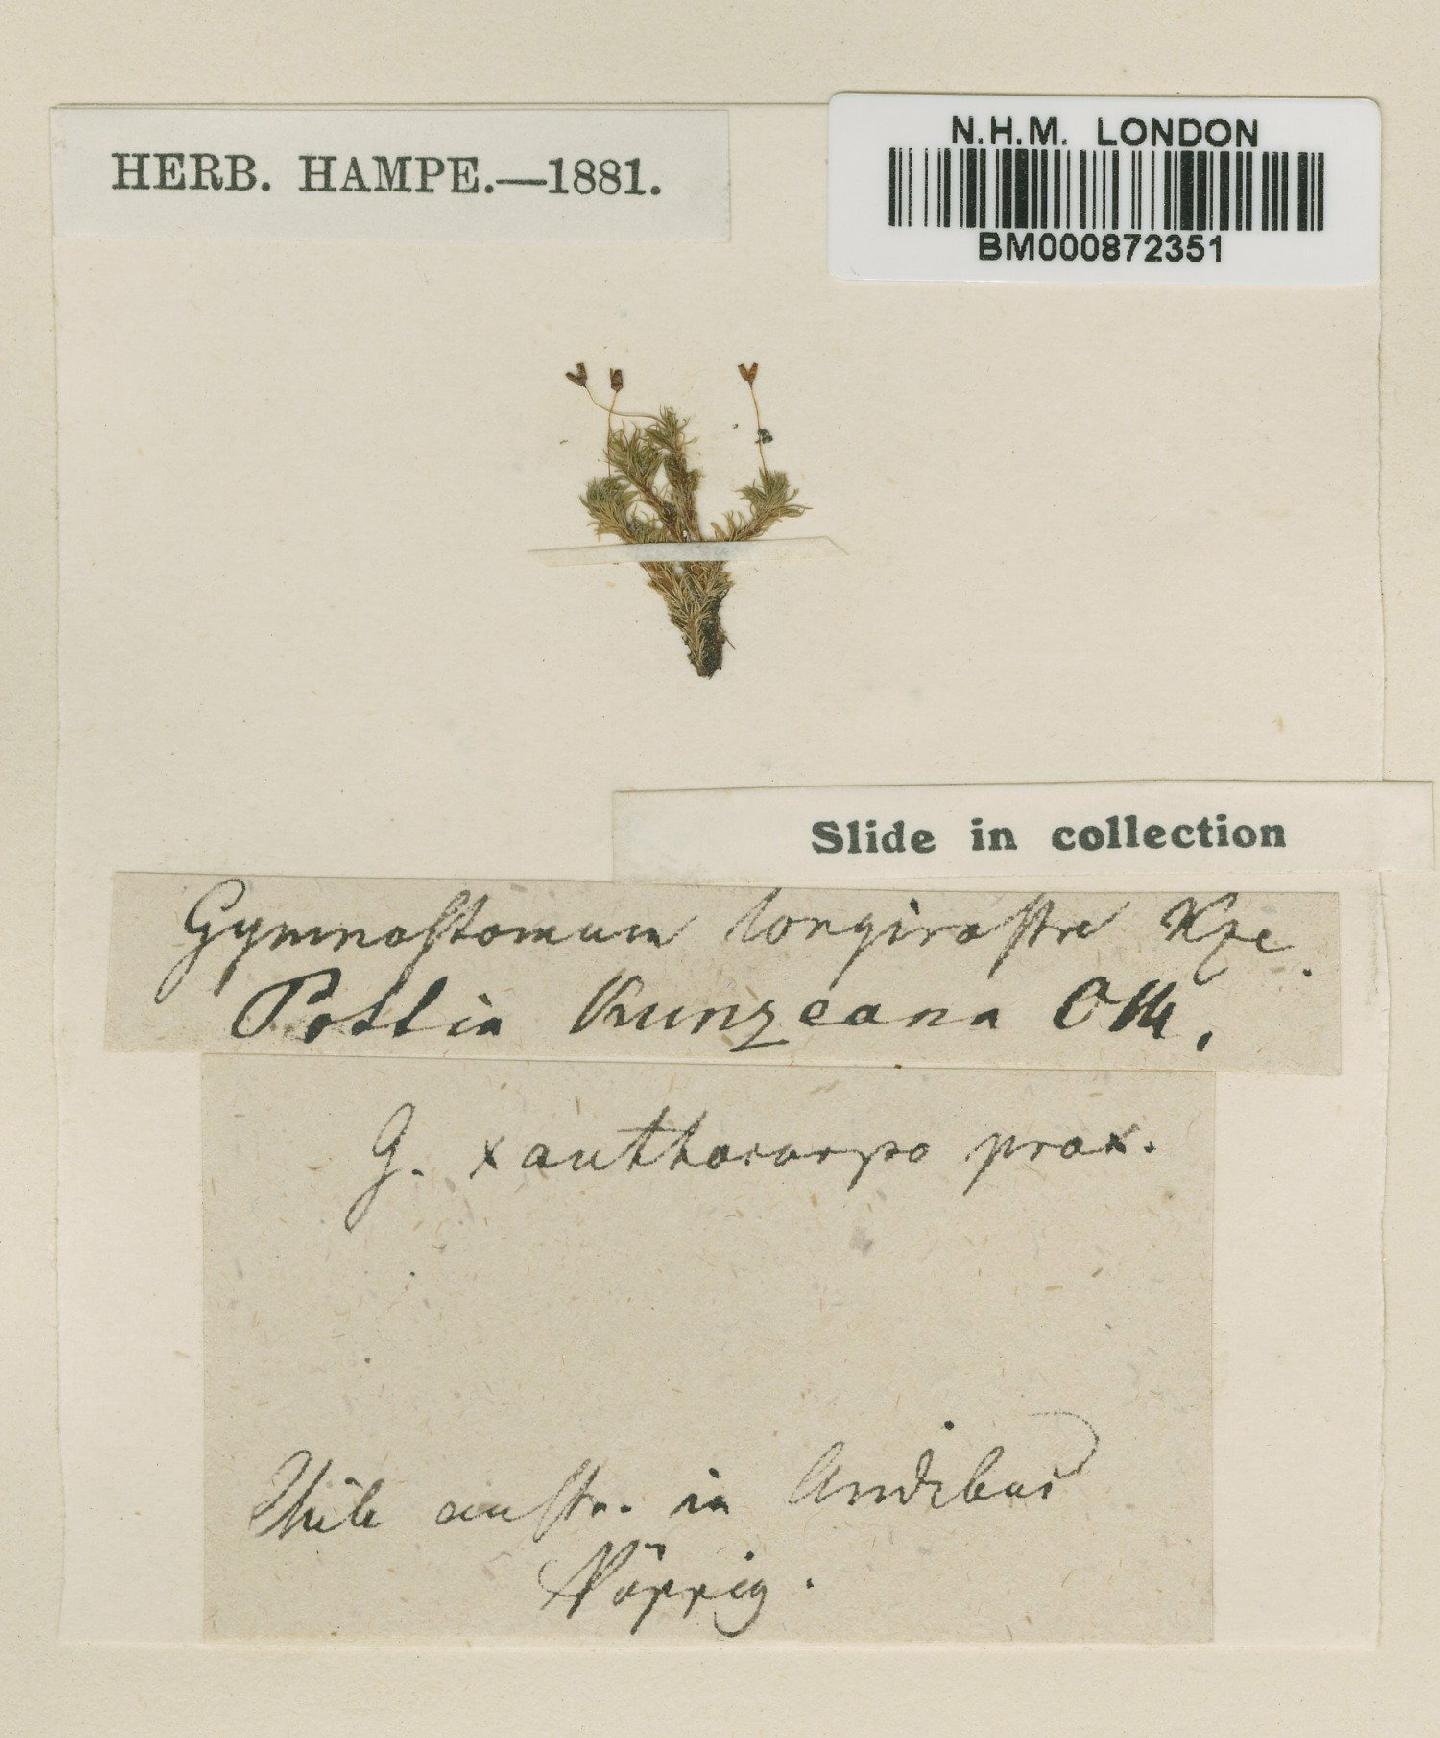 HERB. HAMPE.—1881.
N.H.M. LONDON
BM000872351
Slide in collection
Gymnostomum longirostre Kze.
Pottia Kunzeana CM.
G. xanthocarpo prox.
Chile austr. in Andibus
Pöppig.